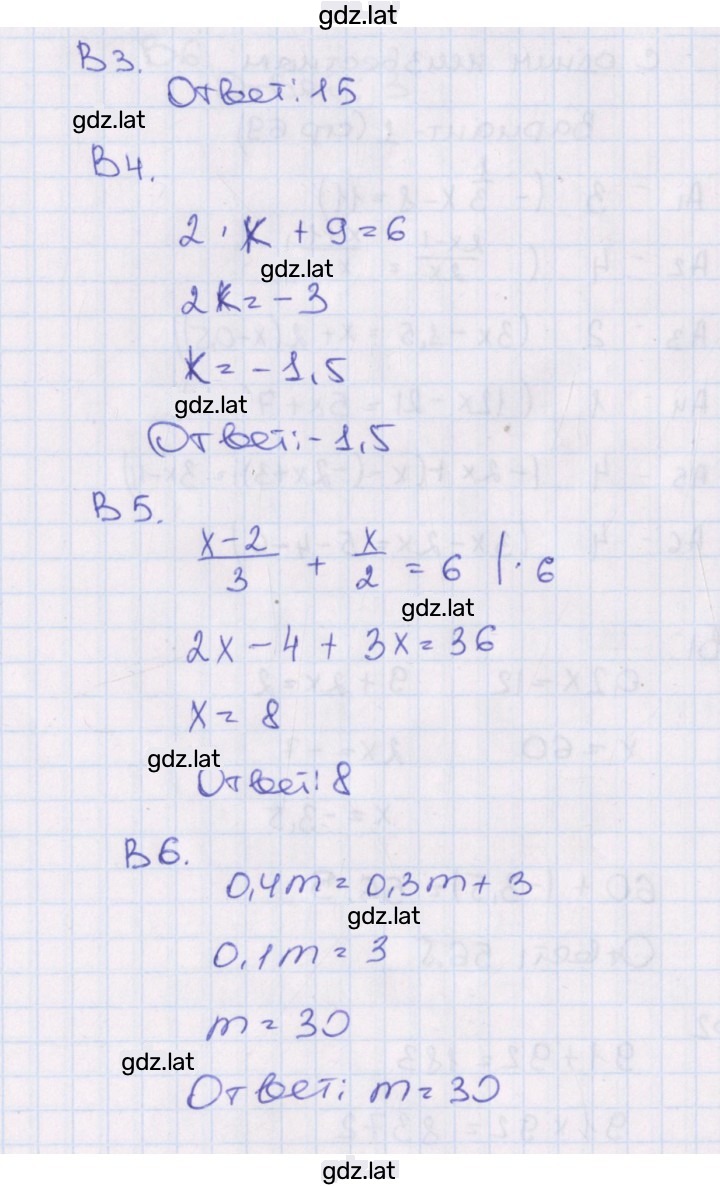 gdz.lat
В3.
Ответ: 15
gdz.lat
В4.
2 · к + 9 = 6
gdz.lat
2к = - 3
к = - 1,5
gdz.lat
Ответ: - 1,5
В5.
x-2/3 + x/2 = 6 | · 6
gdz.lat
2x - 4 + 3x = 36
x = 8
gdz.lat
Ответ: 8
В6.
0,4m = 0,3m + 3
gdz.lat
0,1m = 3
m = 30
gdz.lat
Ответ: m = 30
gdz.lat